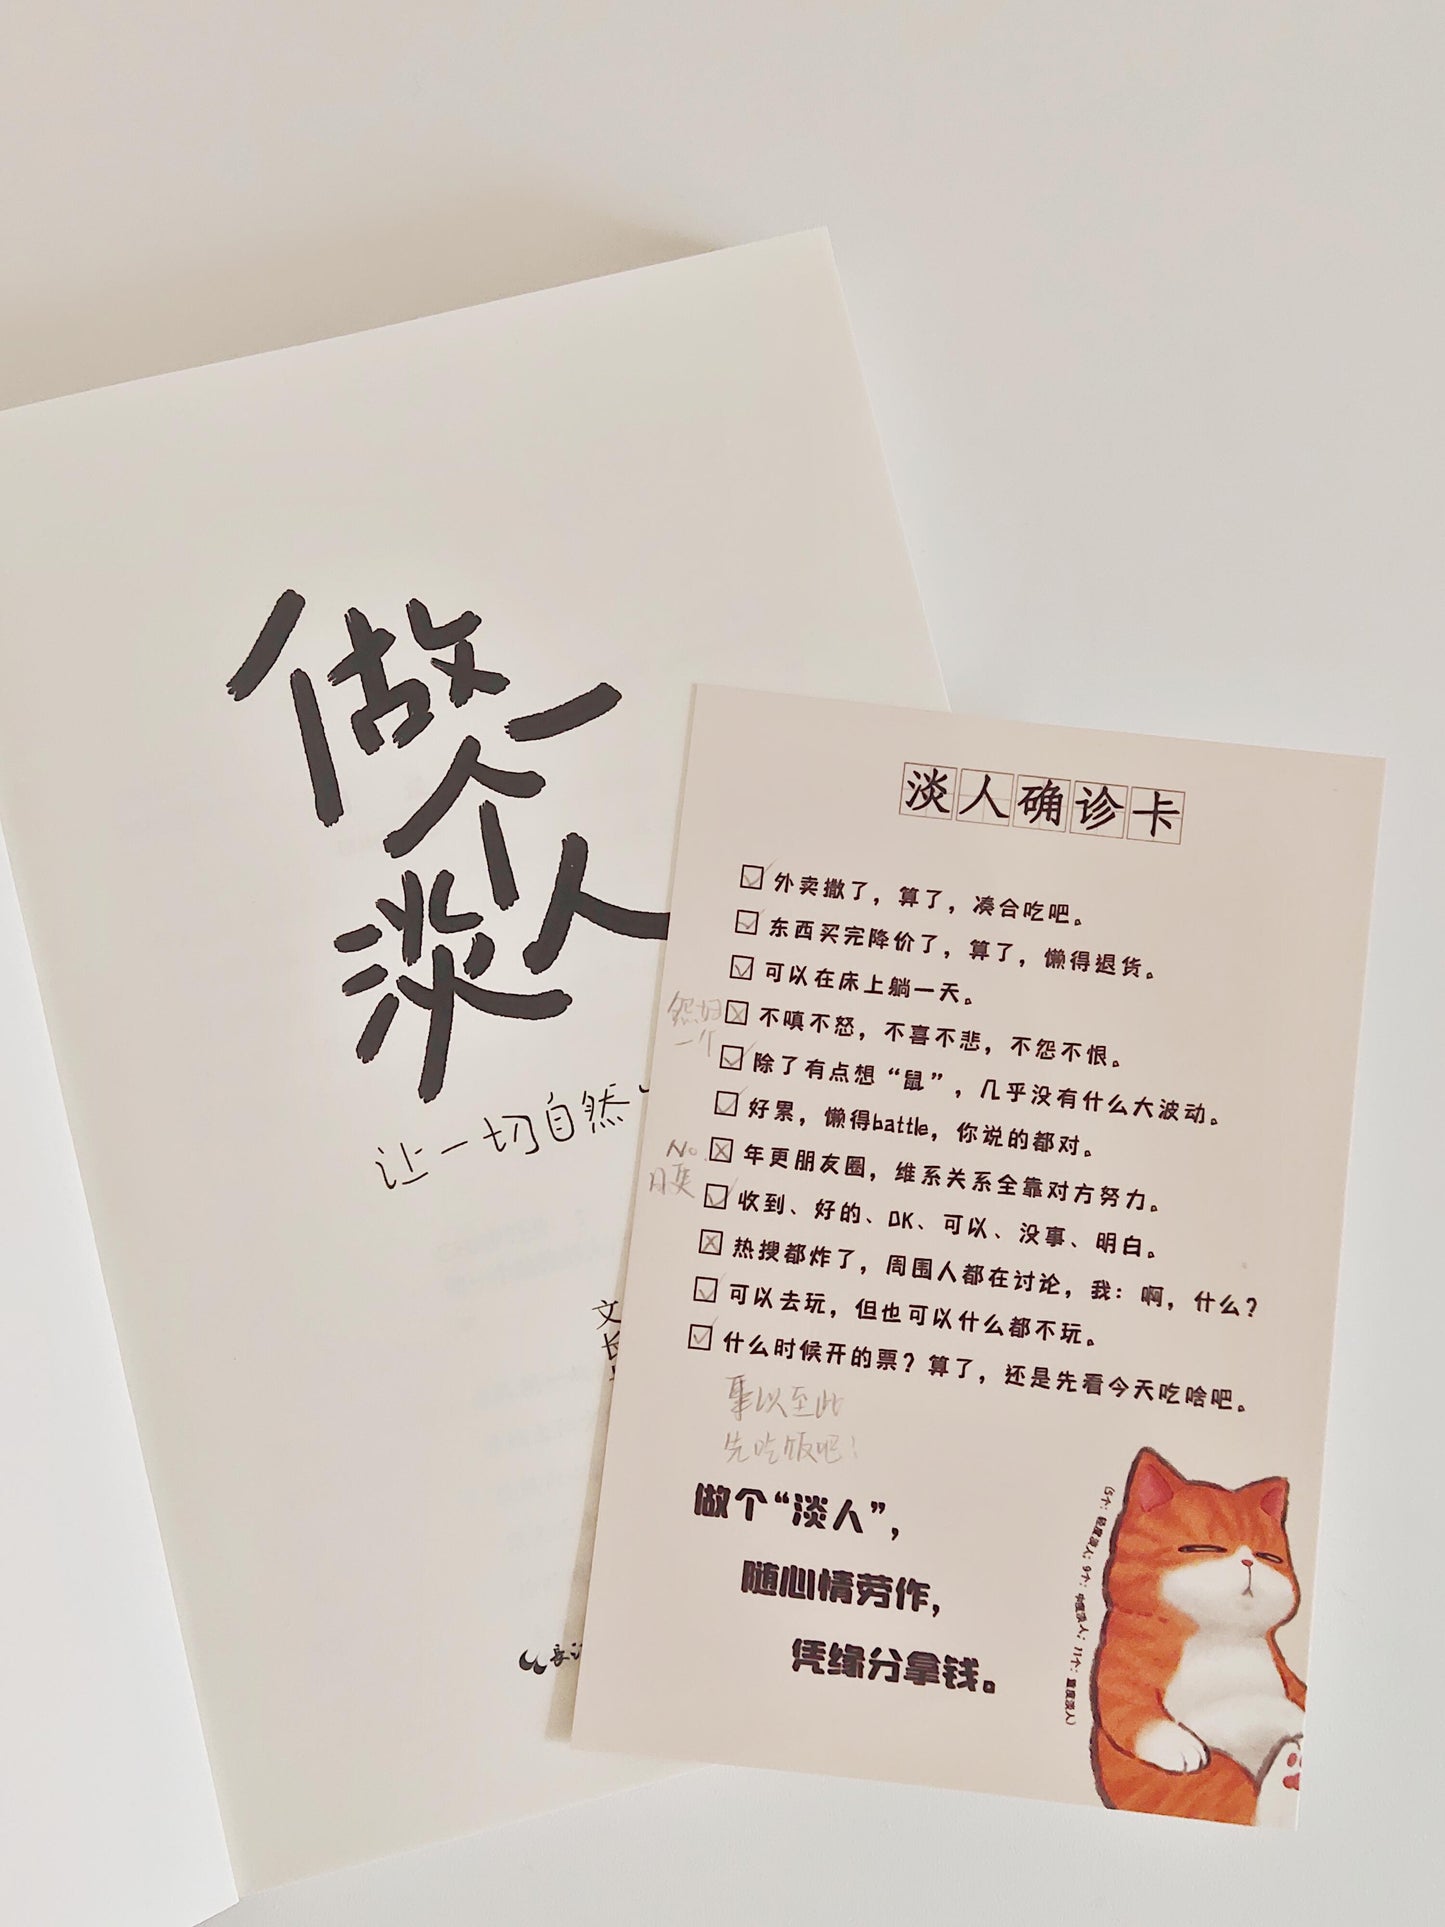 做一
个
淡人
让一切自然
文
淡人确诊卡
外卖撒了，算了，凑合吃吧。
东西买完降价了，算了，懒得退货。
可以在床上躺一天。
怨妇
一个
不嗔不怒，不喜不悲，不怨不恨。
除了有点想“鼠”，几乎没有什么大波动。
好累，懒得battle，你说的都对。
No.
月更
年更朋友圈，维系关系全靠对方努力。
收到、好的、OK、可以、没事、明白。
热搜都炸了，周围人都在讨论，我：啊，什么？
可以去玩，但也可以什么都不玩。
什么时候开的票？算了，还是先看今天吃啥吧。
事以至此
先吃饭吧！
做个“淡人”，
随心情劳作，
凭缘分拿钱。
(5个：轻度淡人；9个：中度淡人；11个：重度淡人)